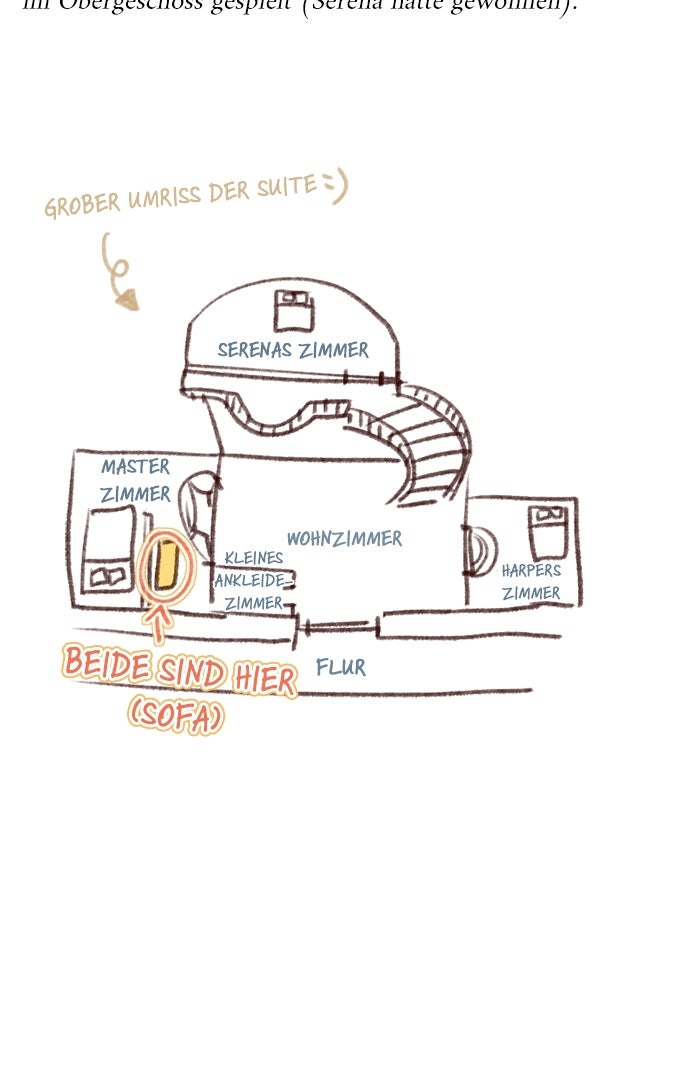 im Obergeschoss gespielt (Serena hatte gewonnen).
GROBER UMRISS DER SUITE =)
SERENAS ZIMMER
MASTER
ZIMMER
WOHNZIMMER
KLEINES
ANKLEIDE-
ZIMMER
HARPERS
ZIMMER
BEIDE SIND HIER
(SOFA)
FLUR